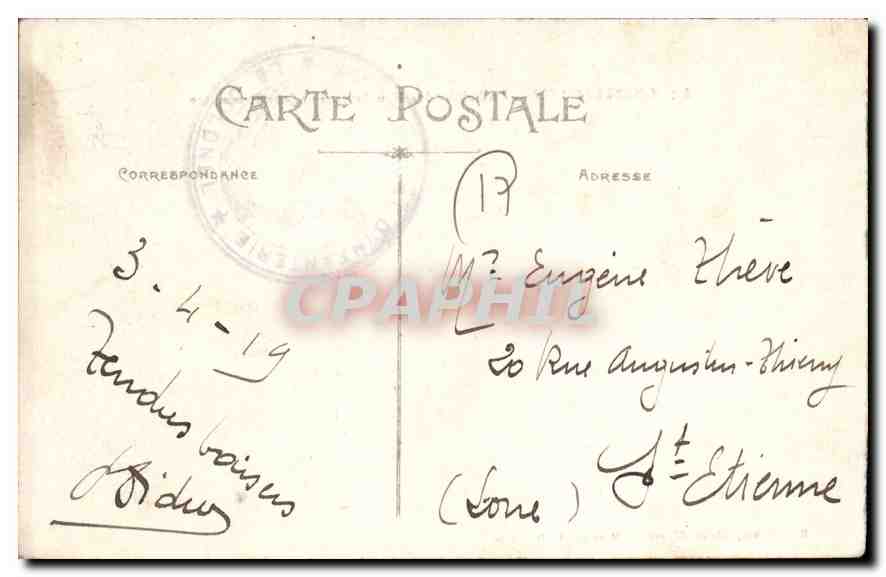 CARTE POSTALE
CORRESPONDANCE
ADRESSE
17
3-4-19
Tendres baisers
Mr Eugène Thève
20 Rue Augustin-Thierry
St Etienne
(Loire)
D'INFANTERIE
CPAPHIL